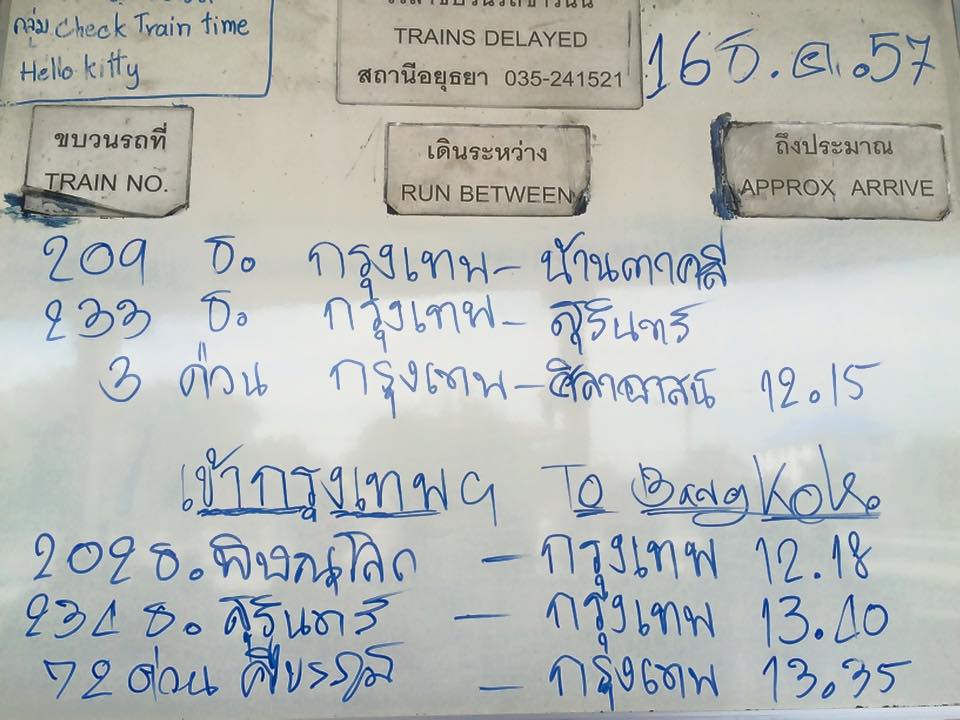 กลุ่ม Check Train time
Hello kitty
TRAINS DELAYED
สถานีอยุธยา 035-241521
16 ธ.ค.57
ขบวนรถที่
TRAIN NO.
เดินระหว่าง
RUN BETWEEN
ถึงประมาณ
APPROX ARRIVE
209 ธ. กรุงเทพ - บ้านตาคลี
233 ธ. กรุงเทพ - สุรินทร์
3 ด่วน กรุงเทพ - ศิลาอาสน์ 12.15
เข้ากรุงเทพฯ To Bangkok.
202 ธ. พิษณุโลก - กรุงเทพ 12.18
234 ธ. สุรินทร์ - กรุงเทพ 13.40
72 ด่วน ศีขรภูมิ - กรุงเทพ 13.35